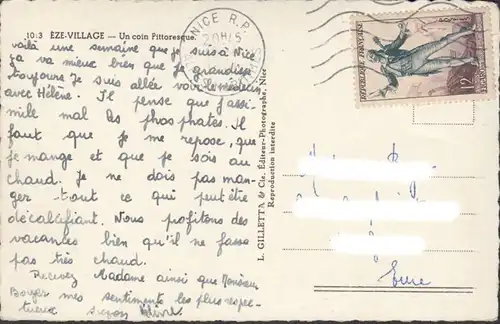 1013 ÈZE-VILLAGE — Un coin Pittoresque.
voilà une semaine que je suis à Nice
ça va mieux bien que je grandisse
toujours. Je suis allée voir le médecin
avec Hélène. Il pense que j'assi-
mile mal les phosphates. Il
faut que je me repose, que
je mange et que je sois au
chaud. Je ne dois pas man-
ger tout ce qui peut être
décalcifiant. Nous profitons des
vacances bien qu'il ne fasse
pas très chaud.
Recevez Madame ainsi que Monsieur
Boyer mes sentiments les plus respec-
tueux
NICE R.P.
20H15
RÉPUBLIQUE FRANÇAISE
12F
POSTES
L. GILLETTA & Cie, Éditeur-Photographe, Nice
Reproduction interdite
Eure